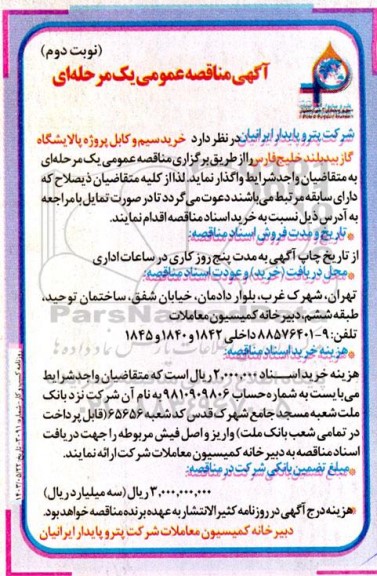 (نوبت دوم)
آگهی مناقصه عمومی یک مرحله‌ای
شرکت پترو پایدار ایرانیان در نظر دارد خرید سیم و کابل پروژه پالایشگاه
گاز بیدبلند خلیج فارس را از طریق برگزاری مناقصه عمومی یک مرحله‌ای
به متقاضیان واجد شرایط واگذار نماید. لذا از کلیه متقاضیان ذیصلاح که
دارای سابقه مرتبط می باشند دعوت می گردد تا در صورت تمایل با مراجعه
به آدرس ذیل نسبت به خرید اسناد مناقصه اقدام نمایند.
*تاریخ و مدت فروش اسناد مناقصه:
از تاریخ چاپ آگهی به مدت پنج روز کاری در ساعات اداری
*محل دریافت (خرید) و عودت اسناد مناقصه:
تهران، شهرک غرب، بلوار دادمان، خیابان شفق، ساختمان توحید،
طبقه ششم، دبیرخانه کمیسیون معاملات
تلفن: ۹-۸۸۵۷۶۴۰۱ داخلی ۱۸۴۲ و ۱۸۴۰ و ۱۸۴۵
*هزینه خرید اسناد مناقصه:
هزینه خرید اســناد ۲,۰۰۰,۰۰۰ ریال است که متقاضیان واجد شرایط
می بایست به شماره حساب ۹۸۱۰۹۰۹۸۰۶ به نام آن شرکت نزد بانک
ملت شعبه مسجد جامع شهرک قدس کد شعبه ۶۵۶۵۶ (قابل پرداخت
در تمامی شعب بانک ملت) واریز و اصل فیش مربوطه را جهت دریافت
اسناد مناقصه به دبیرخانه کمیسیون معاملات شرکت ارائه نمایند.
*مبلغ تضمین بانکی شرکت در مناقصه:
۳,۰۰۰,۰۰۰,۰۰۰ ریال (سه میلیارد ریال)
*هزینه درج آگهی در روزنامه کثیرالانتشار به عهده برنده مناقصه خواهد بود.
دبیرخانه کمیسیون معاملات شرکت پترو پایدار ایرانیان